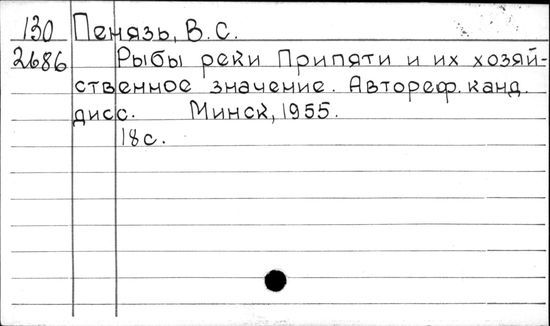 130 Пенязь, В.С.
2686 Рыбы реки Припяти и их хозяй-
ственное значение. Автореф. канд.
дисс. Минск, 1955.
18с.